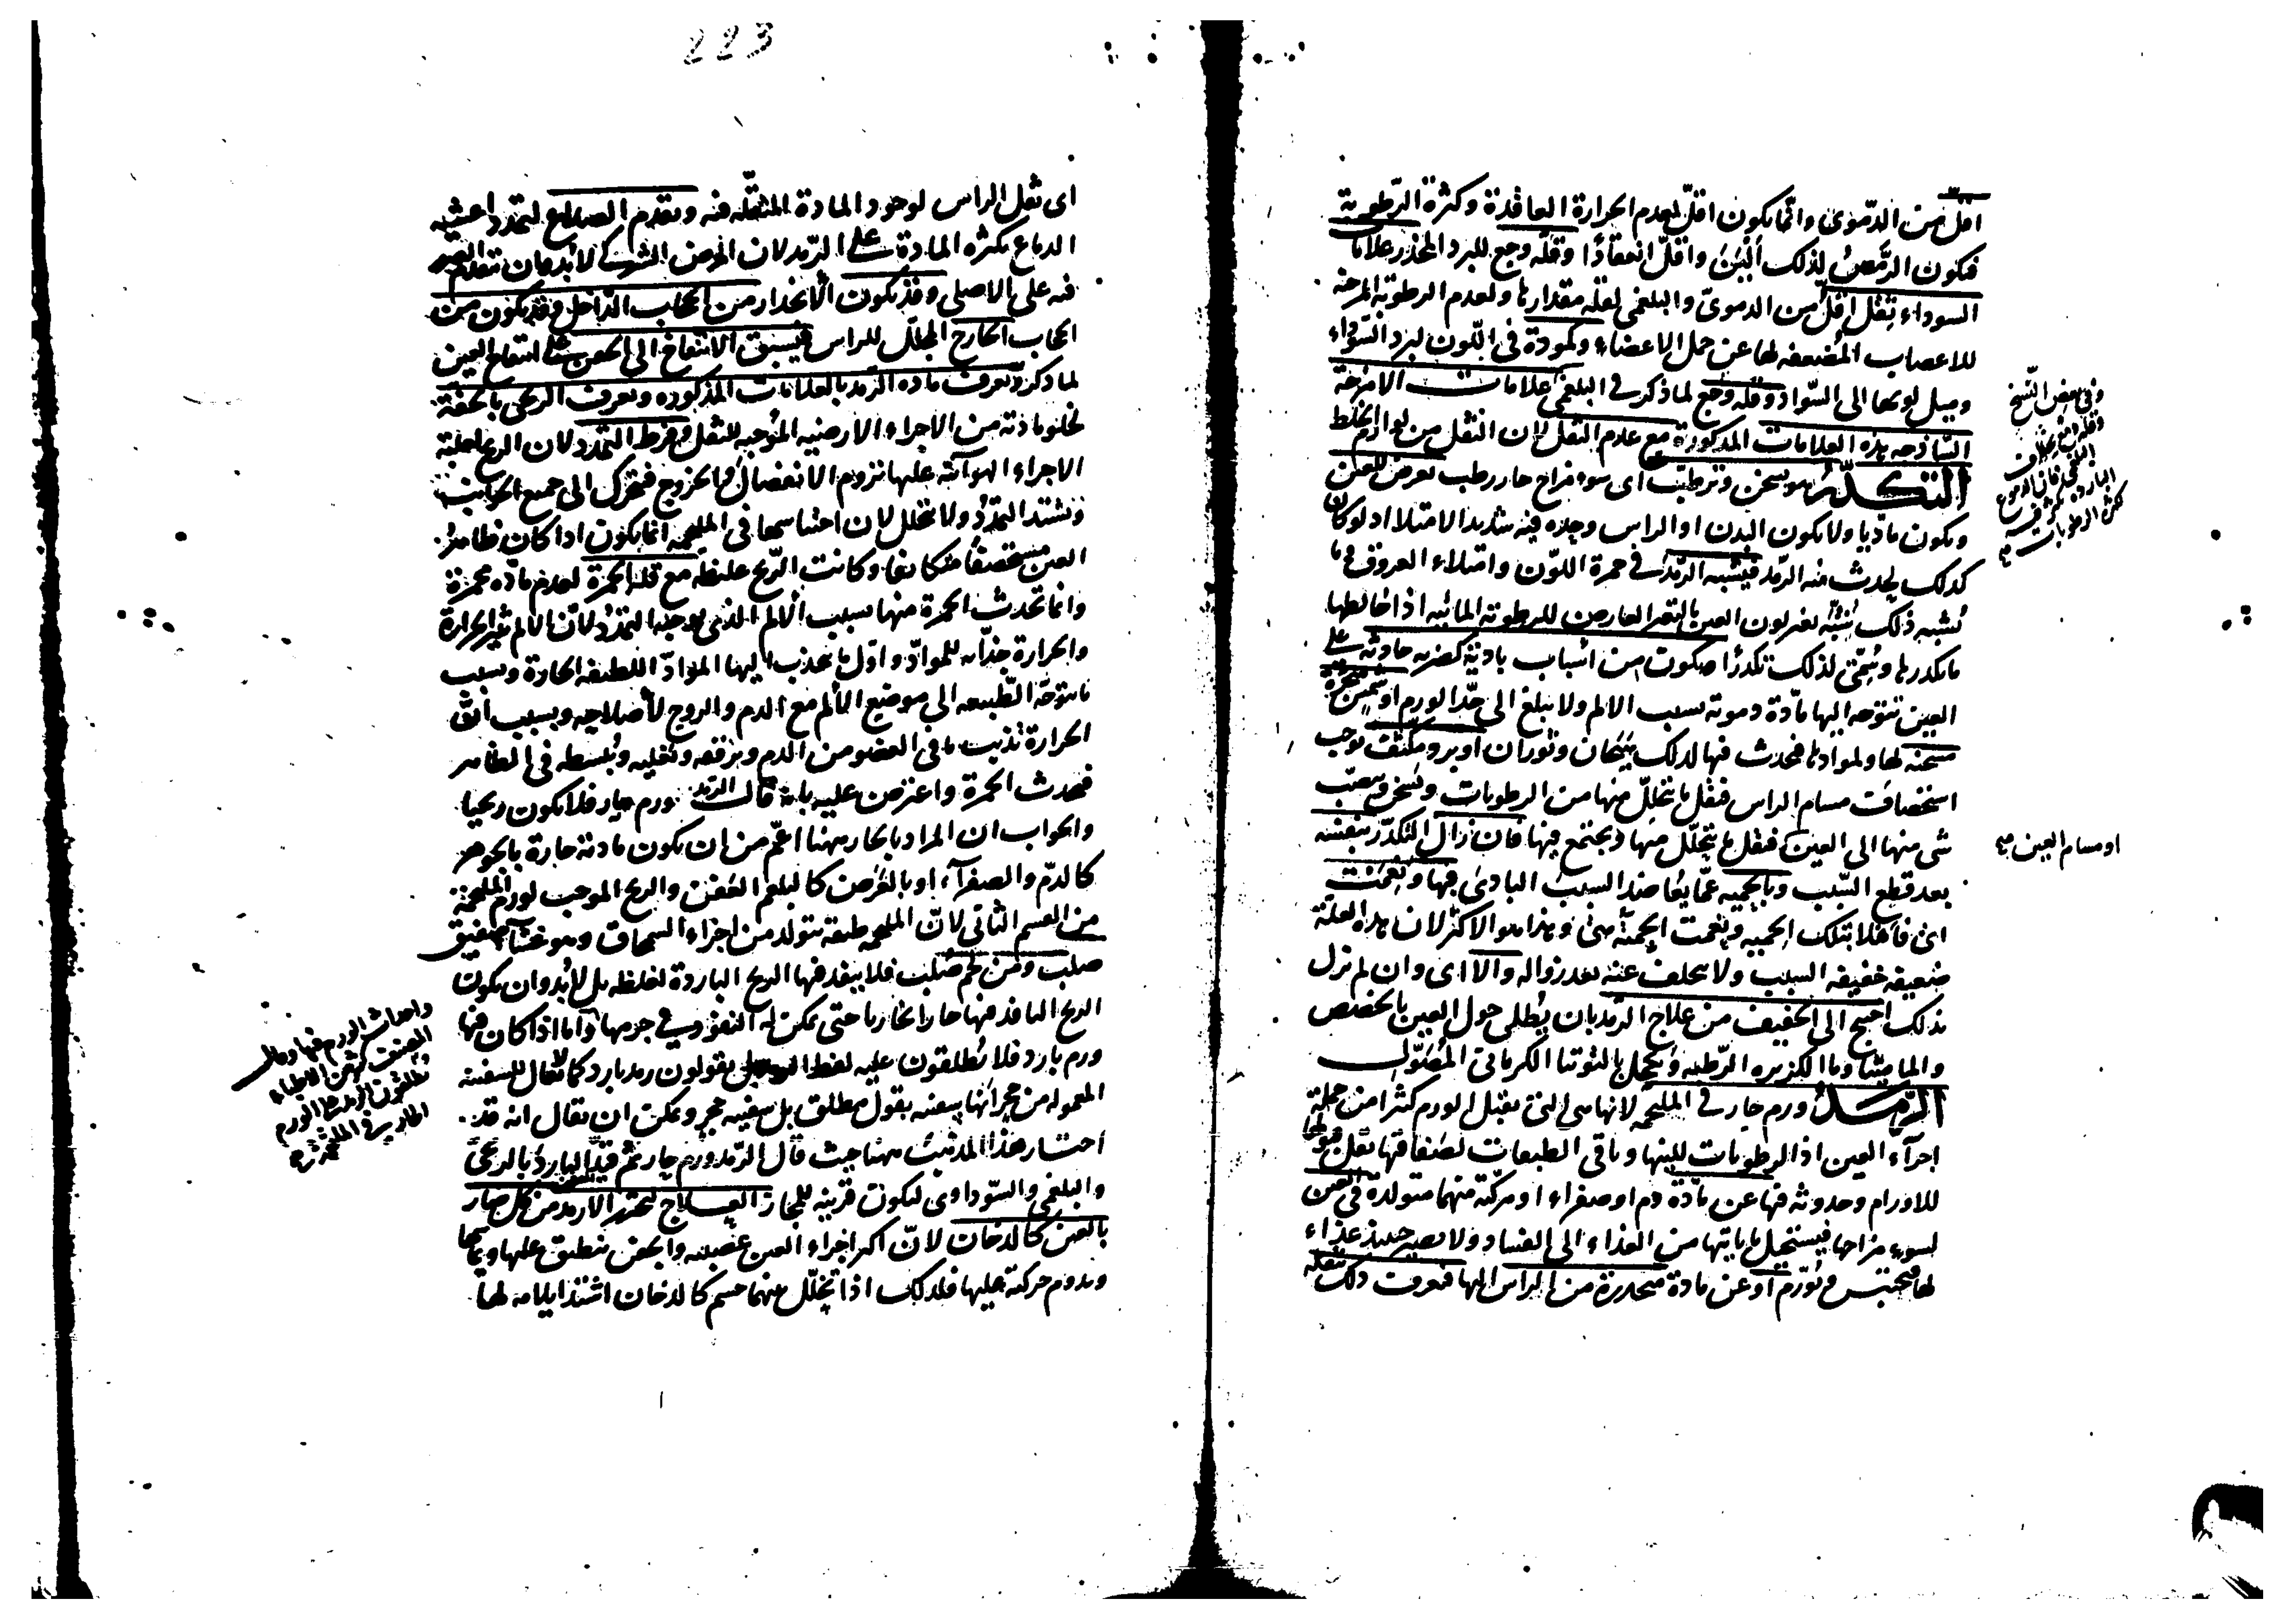 اقل من الدموى وانما يكون اقل لعدم الحرارة العاقدة وكثرة الرطوبة
فيكون الرمص لذلك ألين واقل انعقادًا وقلة وجع للبرد المخدر علامات
السوداء ثقل اقل من الدموى والبلغمى لقلة مقدارها ولعدم الرطوبة المرخية
للاعصاب المضعفة لها عن حمل الاعضاء وكمودة فى اللون لبرد السوداء
وميل لونها الى السواد وقلة وجع لما ذكر فى البلغمى علامات الامزجة
الساذجة هذه العلامات المذكورة مع عدم الثقل لان الثقل من لوازم الخلط
التكدر هو تسخن وترطب اى سوء مزاج حار رطب يعرض للعين
ويكون ماديا ولا يكون البدن او الراس وحده فيه شديد الامتلاء اذ لو كان
كذلك لحدث منه الرمد فيشبه الرمد فى حمرة اللون وامتلاء العروق وما
يشبه ذلك شبه تغير لون العين بالتغير العارض للرطوبة المائية اذا خالطها
ما يكدرها وسمى لذلك تكدرا ويكون من اسباب بادية كضربة حادثة على
العين تتوجه اليها مادة دموية بسبب الالم ولا يبلغ الى حد الورم او شمس مبخرة
مسخنة لها ولموادها فيحدث فيها لذلك هيجان وثوران او برد مكثف يوجب
استحصاف مسام الراس فيقل ما يتحلل منها من الرطوبات وتسخن وينصب
شى منها الى العين فيقل ما يتحلل منها ويجتمع فيها فان زال التكدر بنفسه
بعد قطع السبب وبالحمية عما يعاضد السبب البادى فبها ونعمت
اى فاهلا بتلك الحمية ونعمت الحمية هى وهذا هو الاكثر لان هذه العلة
ضعيفة خفيفة السبب ولا يتخلف عنه بعد زواله والا اى وان لم تزل
بذلك احتيج الى الخفيف من علاج الرمد بان يطلى حول العين بالحضض
والماميثا وماء الكزبرة الرطبة ويكحل بالتوتيا الكرمانى المصول
الرمد ورم حار فى الملتحمة لانها هى التى تقبل الورم كثيرا من جملة
اجزاء العين اذ الرطوبات للينها وباقى الطبقات لصفاقتها تقل قبولها
للاورام وحدوثه فيها عن مادة دم او صفراء او مركبة منهما متولدة فى العين
لسوء مزاجها فيستحيل ما ياتيها من الغذاء الى الفساد ولا يصير حينئذ غذاء
لها فيحتبس وتورم او عن مادة منحدرة من الراس اليها فيعرف ذلك بثقله
وفى بعض النسخ
او مسام العين صح
223
اى ثقل الراس لوجود المادة المثقلة فيه وتقدم الصداع لتمدد اغشية
الدماغ بكثرة المادة على الرمد لان المرض الشركى لا بد من ان تتقدم الضرر
فيه على الاصلى وقد يكون الانحدار من الحجاب الداخل وقد يكون من
الحجاب الخارج المجلل للراس فيسبق الانتفاخ الى الجفن على انتفاخ العين
لما ذكر وتعرف مادة الرمد بالعلامات المذكورة ويعرف الريحى بالخفة
لخلو مادته من الاجزاء الارضية الموجبة للثقل وفرط التمدد لان الريح لغلبة
الاجزاء الهوائية عليها تروم الانفصال والخروج فتحرك الى جميع الجوانب
ويشتد التمدد ولا تتحلل لان احتباسها فى الملتحمة انما يكون اذا كان ظاهر
العين مستحصفا متكاثفا وكانت الريح غليظة مع قلة الحمرة لعدم مادة محمرة
وانما تحدث الحمرة منها بسبب الالم الذى يوجبه التمدد لان الالم مثير الحرارة
والحرارة جذابة للمواد واول ما ينجذب اليها المواد اللطيفة الحادة وبسبب
ما توجه الطبيعة الى موضع الالم مع الدم والروح لاصلاحه وبسبب ان
الحرارة تذيب ما فى العضو من الدم وترققه وتغليه وتبسطه فى الظاهر
فيحدث الحمرة واعترض عليه بانه قال الرمد ورم حار فلا يكون ريحيا
والجواب ان المراد بالحار ههنا اعم من ان يكون مادته حارة بالجوهر
كالدم والصفراء او بالعرض كالبلغم العفن والريح الموجب لورم الملتحمة
من القسم الثانى لان الملتحمة طبقة تتولد من اجزاء السمحاق وهو غشاء صفيق
صلب ومن لحم صلب فلا ينفذ فيها الريح الباردة لغلظه بل لا بد وان يكون
الريح النافذ فيها حارا بخاريا حتى يمكن له النفوذ فى جرمها واما اذا كان فيها
ورم بارد فلا يطلقون عليه لفظ الرمد بل يقولون رمد بارد كما يقال للسفينة
المعمولة من حجر انها سفينة بقول مطلق بل سفينة حجر ويمكن ان يقال انه قد
اختار هذا المذهب ههنا حيث قال الرمد ورم حار ثم قيد البارد بالريحى
والبلغمى والسوداوى ليكون قرينة للمجاز العلاج لتحرز الارمد من كل ضار
بالعين كالدخان لان اكثر اجزاء العين عصبية والجفن ينطبق عليها ويماسها
ويدوم حركته عليها فلذلك اذا تخلل بينهما جسم كالدخان اشتد ايلامه لها